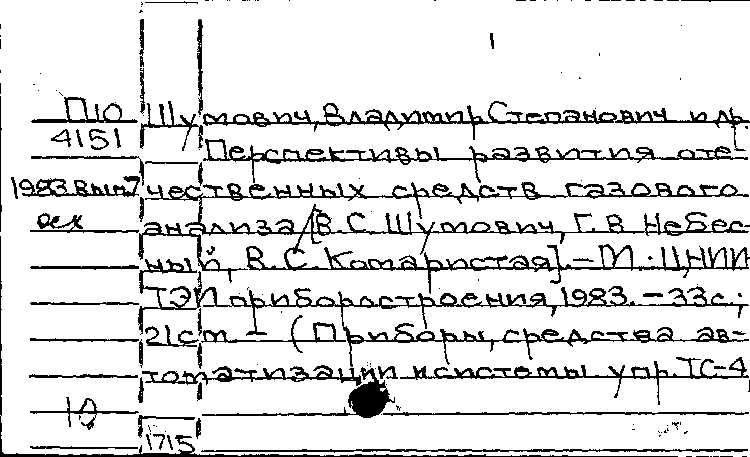 1
П10 Шумович, Владимир Степанович и др.
4151
Перспективы развития оте-
1983 вып.7 чественных средств газового
анализа [В.С. Шумович, Г.В. Небес-
ный, В.С. Комаристая]. - М.: ЦНИИ
ТЭИ приборостроения, 1983. - 33с.;
21см - (Приборы, средства ав-
томатизации и системы упр. ТС-4
10
1715